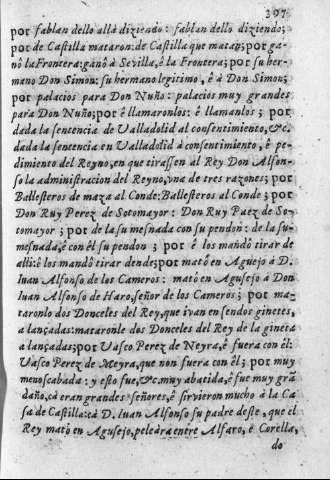 397
por fablan dello allà diziendo: fablan dello diziendo;
por de Castilla mataron: de Castilla que matas; por ga-
nò la Frontera: ganò à Sevilla, è la Frontera; por su her-
mano Don Simon: su hermano legitimo, è à Don Simon;
por palacios para Don Nuño: palacios muy grandes
para Don Nuño; por è llamaronlos: è llamanlos; por
dada la sentencia de Valladolid al consentimiento, &c.
dada la sentencia en Valladolid à consentimiento, è pe-
dimiento del Reyno, en que tirassen al Rey Don Alfon-
so la administracion del Reyno, vna de tres razones; por
Ballesteros de maza al Conde: Ballesteros al Conde; por
Don Ruy Perez de Sotomayor: Don Ruy Paez de So-
tomayor; por de la su mesnada con su pendon: de la su-
mesnada, è con èl su pendon; por è los mandò tirar de
alli: è los mandò tirar dende; por matò en Aguejo à D.
Iuan Alfonso de los Cameros: matò en Agusejo à Don
Iuan Alfonso de Haro, señor de los Cameros; por ma-
taronlo dos Donceles del Rey, que ivan en sendos ginetes,
a lançadas: mataronle dos Donceles del Rey de la gineta
a lançadas; por Vasco Perez de Neyra, è fuera con èl:
Vasco Perez de Meyra, que non fuera con èl; por muy
menoscabada: y esto fue, &c. muy abatida, è fue muy grã
daño, cà eran grandes señores, è sirvieron mucho à la Ca
sa de Castilla: cà D. Iuan Alfonso su padre deste, que el
Rey matò en Agusejo, peleàra entre Alfaro, è Corella,
do